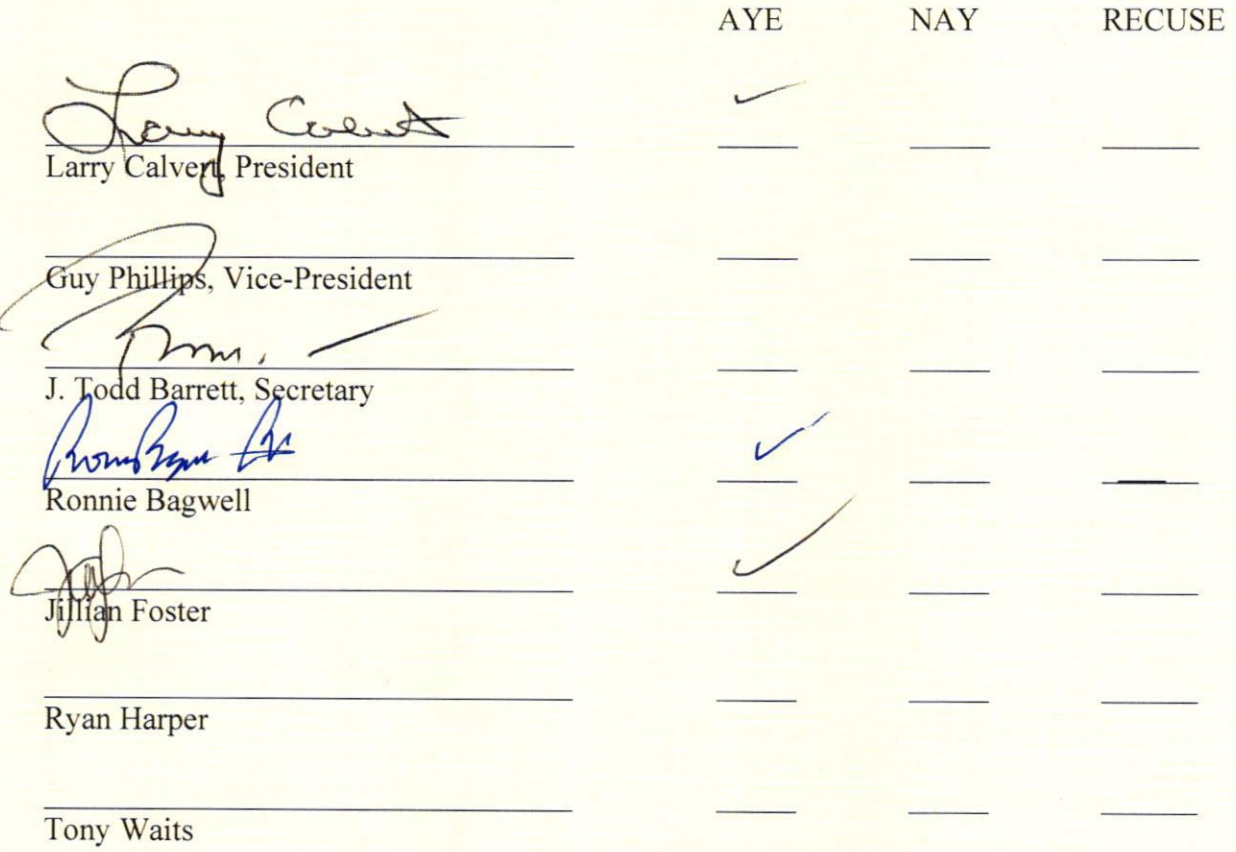 AYE NAY RECUSE
Larry Calvert
Larry Calvert, President
Guy Phillips, Vice-President
J. Todd Barrett, Secretary
Ronnie Bagwell
Jillian Foster
Ryan Harper
Tony Waits